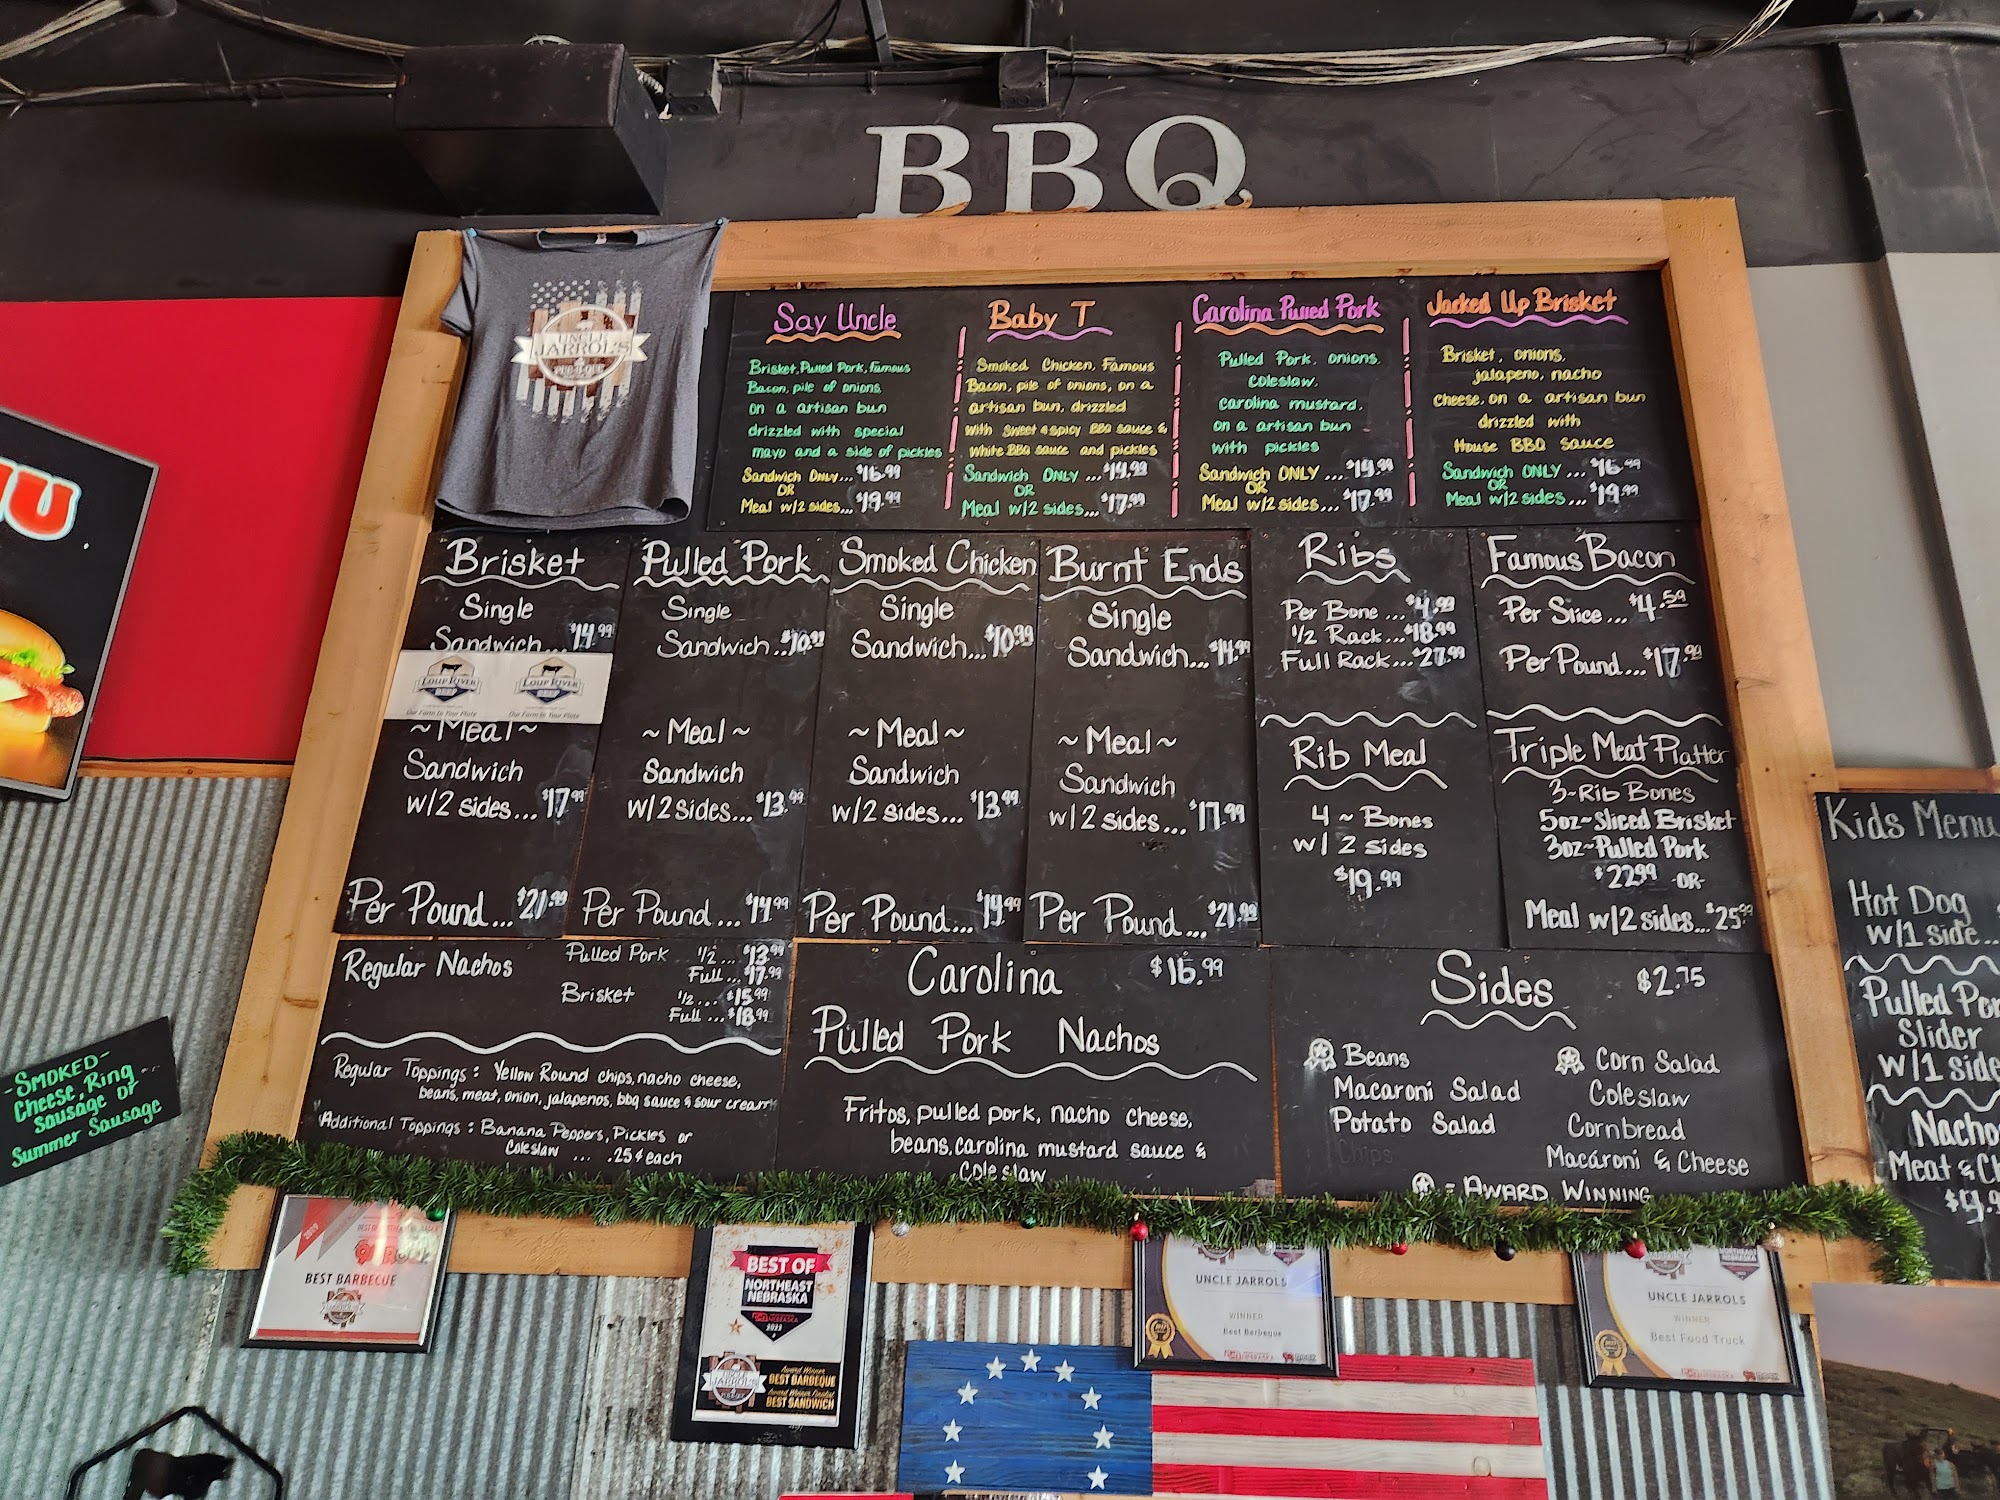 BBQ
JARROL'S
PUB-N-QUE
Say Uncle
Brisket, Pulled Pork, Famous
Bacon, pile of onions
on a artisan bun
drizzled with special
mayo and a side of pickles
Sandwich Only... $16.99
OR
Meal w/2 sides... $19.99
Baby T
Smoked Chicken, Famous
Bacon, pile of onions, on a
artisan bun, drizzled
with sweet & spicy BBQ sauce &
White BBQ sauce and pickles
Sandwich ONLY ... $14.99
OR
Meal w/2 sides... $17.99
Carolina Pulled Pork
Pulled Pork, onions,
Coleslaw,
Carolina mustard,
on a artisan bun
with pickles
Sandwich ONLY ... $14.99
OR
Meal w/2 sides... $17.99
Jacked Up Brisket
Brisket, onions,
jalapeno, nacho
cheese, on a artisan bun
drizzled with
House BBQ sauce
Sandwich ONLY ... $16.99
OR
Meal w/2 sides... $19.99
Brisket
Single
Sandwich.. $14.99
LOUP RIVER
BEEF
Our Farm to Your Plate
LOUP RIVER
BEEF
Our Farm to Your Plate
~Meal~
Sandwich
w/2 sides... $17.99
Per Pound... $21.99
Pulled Pork
Single
Sandwich.. $10.99
~Meal~
Sandwich
w/2 sides... $13.99
Per Pound... $14.99
Smoked Chicken
Single
Sandwich... $10.99
~Meal~
Sandwich
w/2 sides... $13.99
Per Pound... $14.99
Burnt Ends
Single
Sandwich... $14.99
~Meal~
Sandwich
w/2 sides... $17.99
Per Pound... $21.99
Ribs
Per Bone ... $4.99
1/2 Rack... $18.99
Full Rack... $27.99
Rib Meal
4 ~ Bones
w/ 2 sides
$19.99
Famous Bacon
Per Slice... $4.59
Per Pound... $17.99
Triple Meat Platter
3~Rib Bones
5oz~Sliced Brisket
3oz~Pulled Pork
$22.99 -OR-
Meal w/2 sides... $25.99
Regular Nachos
Pulled Pork 1/2 ... $13.99
Full... $17.99
Brisket 1/2 ... $15.99
Full ... $18.99
Regular Toppings: Yellow Round chips, nacho cheese,
beans, meat, onion, jalapenos, bbq sauce & sour cream
Additional Toppings: Banana Peppers, Pickles or
Coleslaw ... .25¢ each
Carolina $16.99
Pulled Pork Nachos
Fritos, pulled pork, nacho cheese,
beans, carolina mustard sauce &
Coleslaw
Sides $2.75
Beans
Macaroni Salad
Potato Salad
Chips
Corn Salad
Coleslaw
Cornbread
Macaroni & Cheese
- AWARD WINNING
Kids Menu
Hot Dog
w/1 side...
Pulled Por
Slider
w/1 side
Nacho
Meat & Ch
$9.9
-SMOKED-
Cheese, Ring
Sausage or
Summer Sausage
NU
2019
BEST BARBECUE
BEST OF
NORTHEAST
NEBRASKA
2023
JARROL'S
Award Winner
BEST BARBEQUE
Award Winner Finalist
BEST SANDWICH
UNCLE JARROLS
WINNER
Best Berbeque
UNCLE JARROLS
WINNER
Best Food Truck